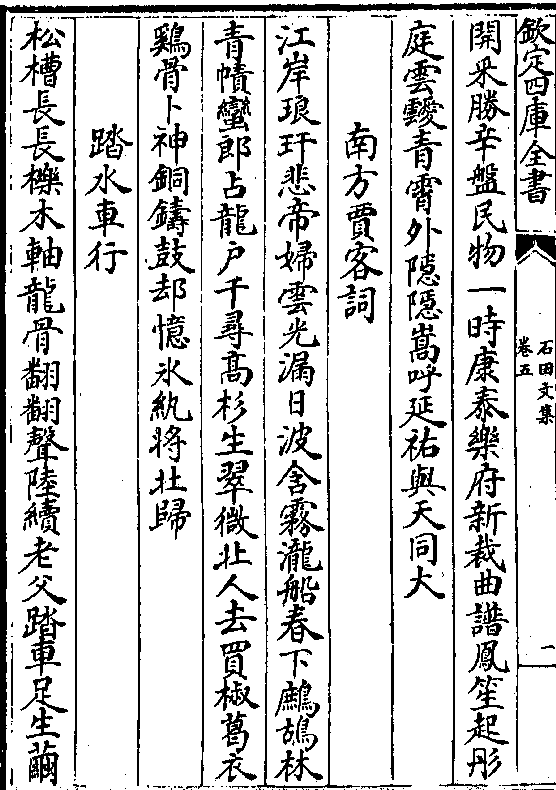 欽定四庫全書
石田文集
卷五
一
開采勝辛盤民物一時康泰樂府新裁曲譜鳳笙起彤
庭雲靉青霄外隠隠嵩呼延祐與天同大
南方賈客詞
江岸琅玕悲帝婦雲光漏日波含霧瀧船春下鷓鴣林
青幘蠻郎占龍戶千尋高杉生翠微北人去買椒葛衣
鷄骨卜神銅鑄鼓却憶氷紈將北歸
踏水車行
松槽長長櫟木軸龍骨翻翻聲陸續老父踏車足生繭